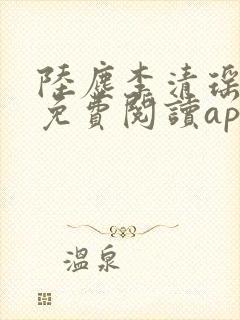 陸塵李清瑶
免費閱讀ap
溫泉